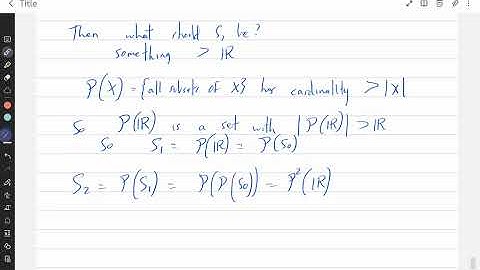 Title
Then what should S₁ be?
something > ℝ
P(X) = {all subsets of X} has cardinality > |X|
So P(ℝ) is a set with |P(ℝ)| > ℝ
So S₁ = P(ℝ) = P(S₀)
S₂ = P(S₁) = P(P(S₀)) = P²(ℝ)